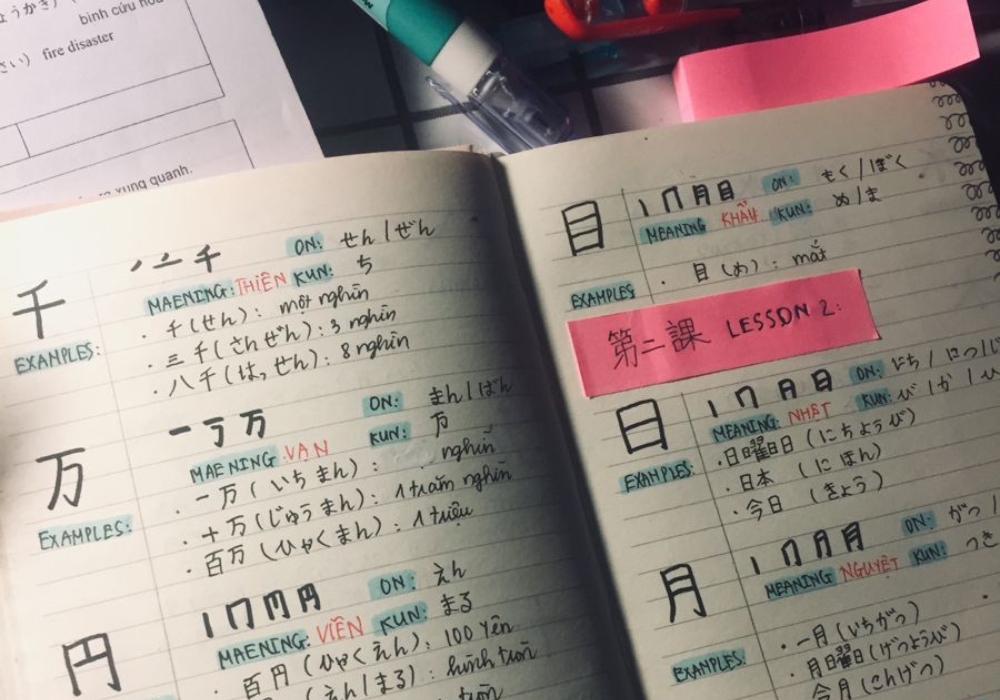 bình cứu hỏa
fire disaster
xung quanh.
千
ノ 二 千 ON: せん / ぜん
MAENING: THIÊN KUN: ち
EXAMPLES:
· 千 (せん) : một nghìn
· 三千 (さんぜん) : 3 nghìn
· 八千 (はっせん) : 8 nghìn
万
一 丂 万 ON: まん / ばん
MAENING: VẠN KUN: 万
EXAMPLES:
· 一万 (いちまん) : nghìn
· 十万 (じゅうまん) : 1 trăm nghìn
· 百万 (ひゃくまん) : 1 triệu
円
丨 冂 円 ON: えん
MAENING: VIÊN KUN: まる
· 百円 (ひゃくえん) : 100 Yên
(えん/まる) : hình tròn
tròn
目
丨 冂 月 目 ON: もく / ぼく
MEANING KHẨU KUN: め / ま
EXAMPLES
· 目 (め) : mắt
第二課 LESSON 2:
日
丨 冂 月 日 ON: にち / にっ / じ
MEANING: NHẬT KUN: び / か / ひ
EXAMPLES:
· 日曜日 (にちようび)
· 日本 (にほん)
· 今日 (きょう)
月
丨 冂 月 月 ON: がつ /
MEANING NGUYỆT KUN: つき
EXAMPLES:
· 一月 (いちがつ)
· 月曜日 (げつようび)
今月 (こんげつ)